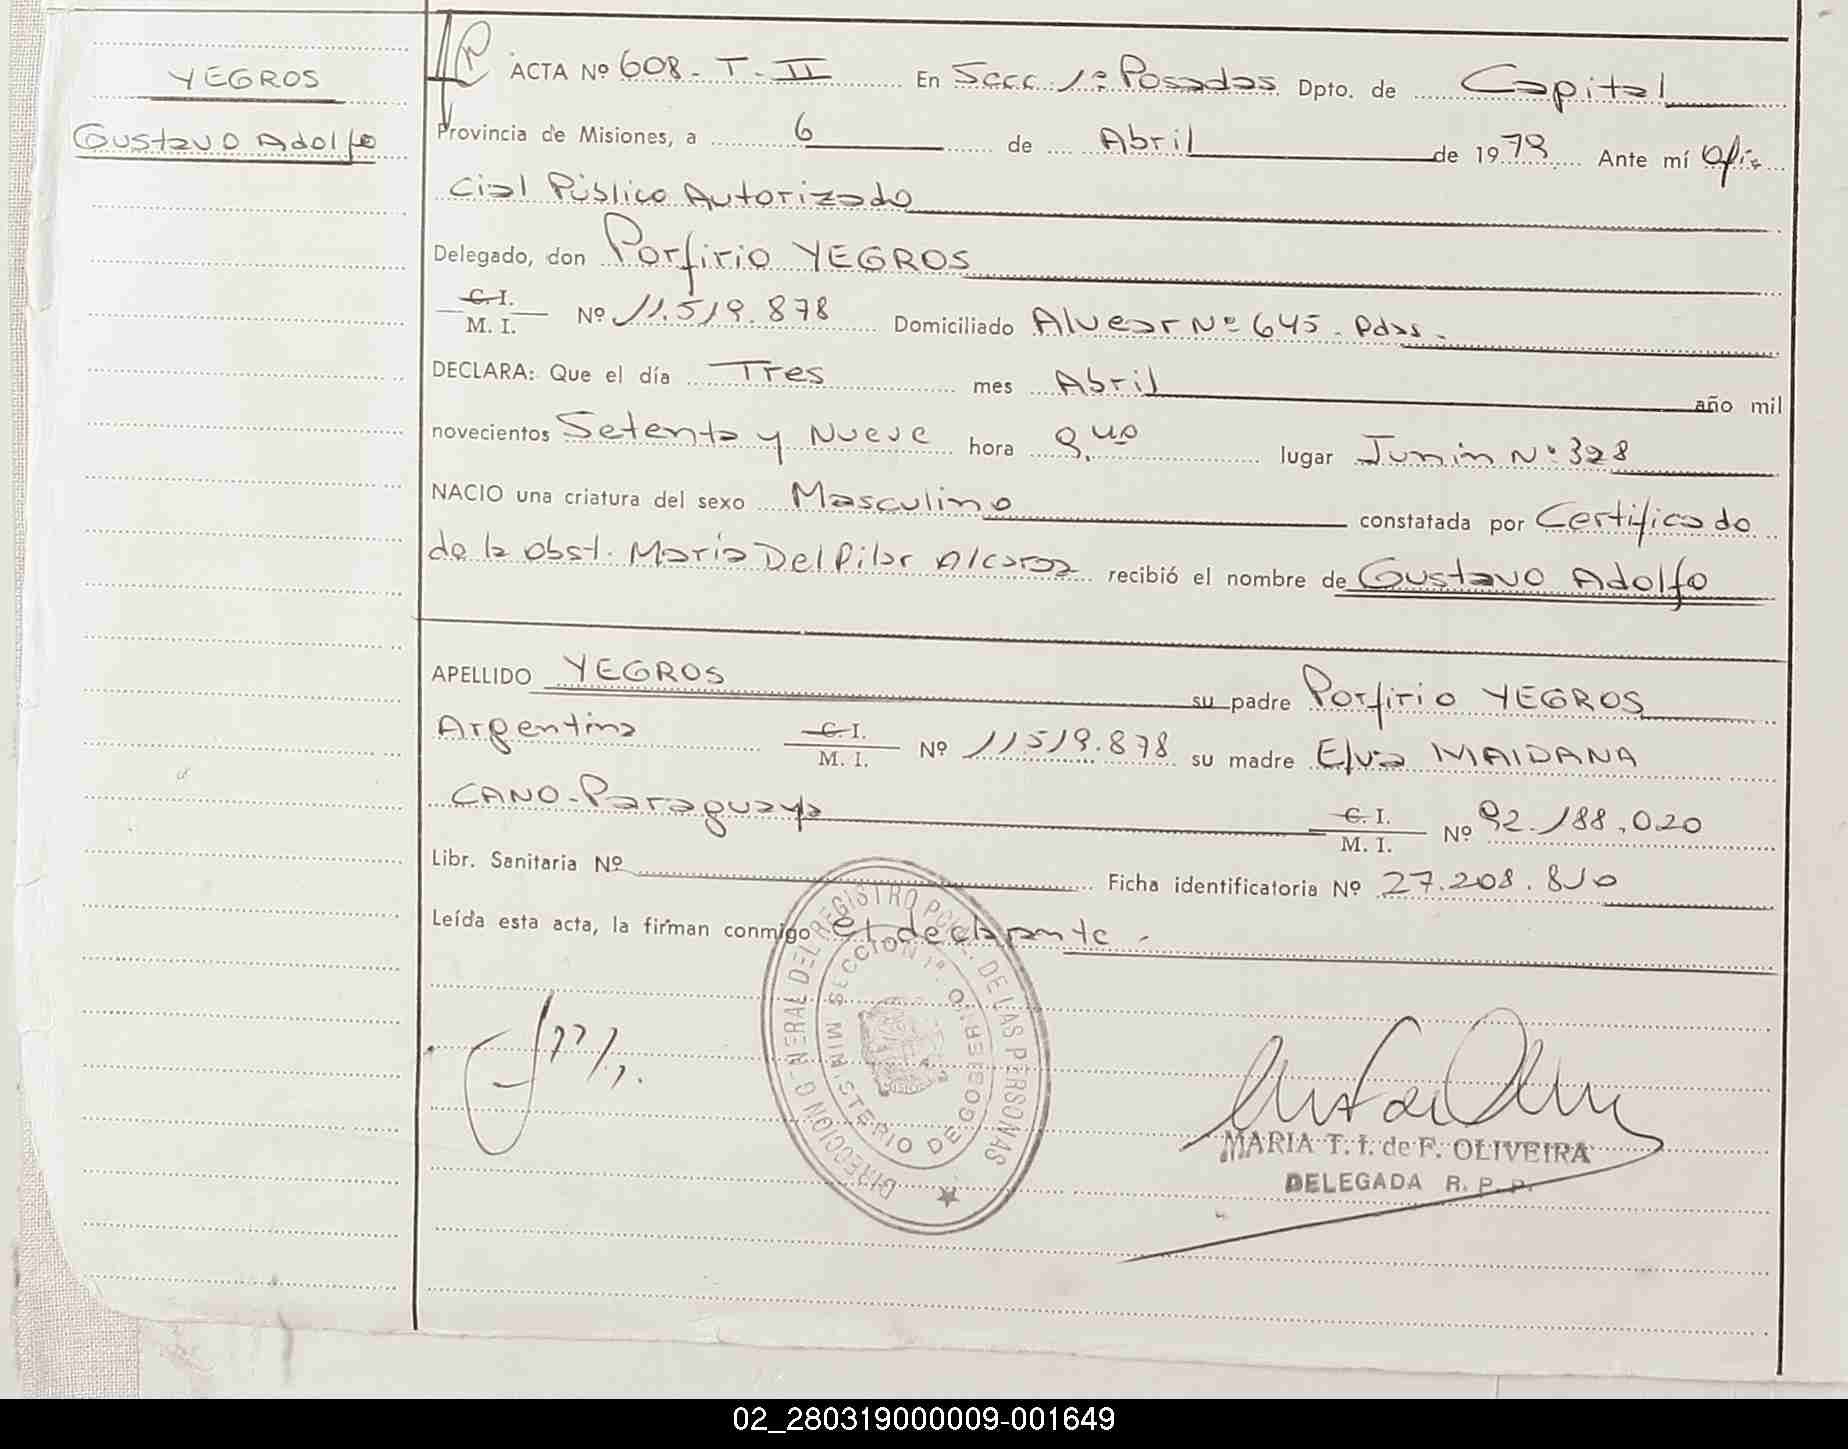 YEGROS
Gustavo Adolfo
ACTA Nº 608 - T - II En Secc. 1ª Posadas Dpto. de Capital
Provincia de Misiones, a 6 de Abril de 1979 Ante mí Ofi-
cial Público Autorizado
Delegado, don Porfirio YEGROS
C. I.
M. I. Nº 11.519.878 Domiciliado Alvear Nº 645 - Pdas.
DECLARA: Que el día Tres mes Abril año mil
novecientos Setenta y Nueve hora lugar Junin Nº 328
NACIO una criatura del sexo Masculino constatada por Certificado
de la obst. Maria Del Pilar Alcaraz recibió el nombre de Gustavo Adolfo
APELLIDO YEGROS su padre Porfirio YEGROS
Argentino C. I. M. I. Nº 11.519.878 su madre Elva MAIDANA
CANO - Paraguaya C. I. M. I. Nº 92.188.020
Libr. Sanitaria Nº Ficha identificatoria Nº 27.208.810
Leída esta acta, la firman conmigo el declarante -
DIRECCION GENERAL DEL REGISTRO PCIAL. DE LAS PERSONAS
MINISTERIO DE GOBIERNO
SECCION 1ª
MARIA T. I. de F. OLIVEIRA
DELEGADA R. P. P.
02_280319000009-001649